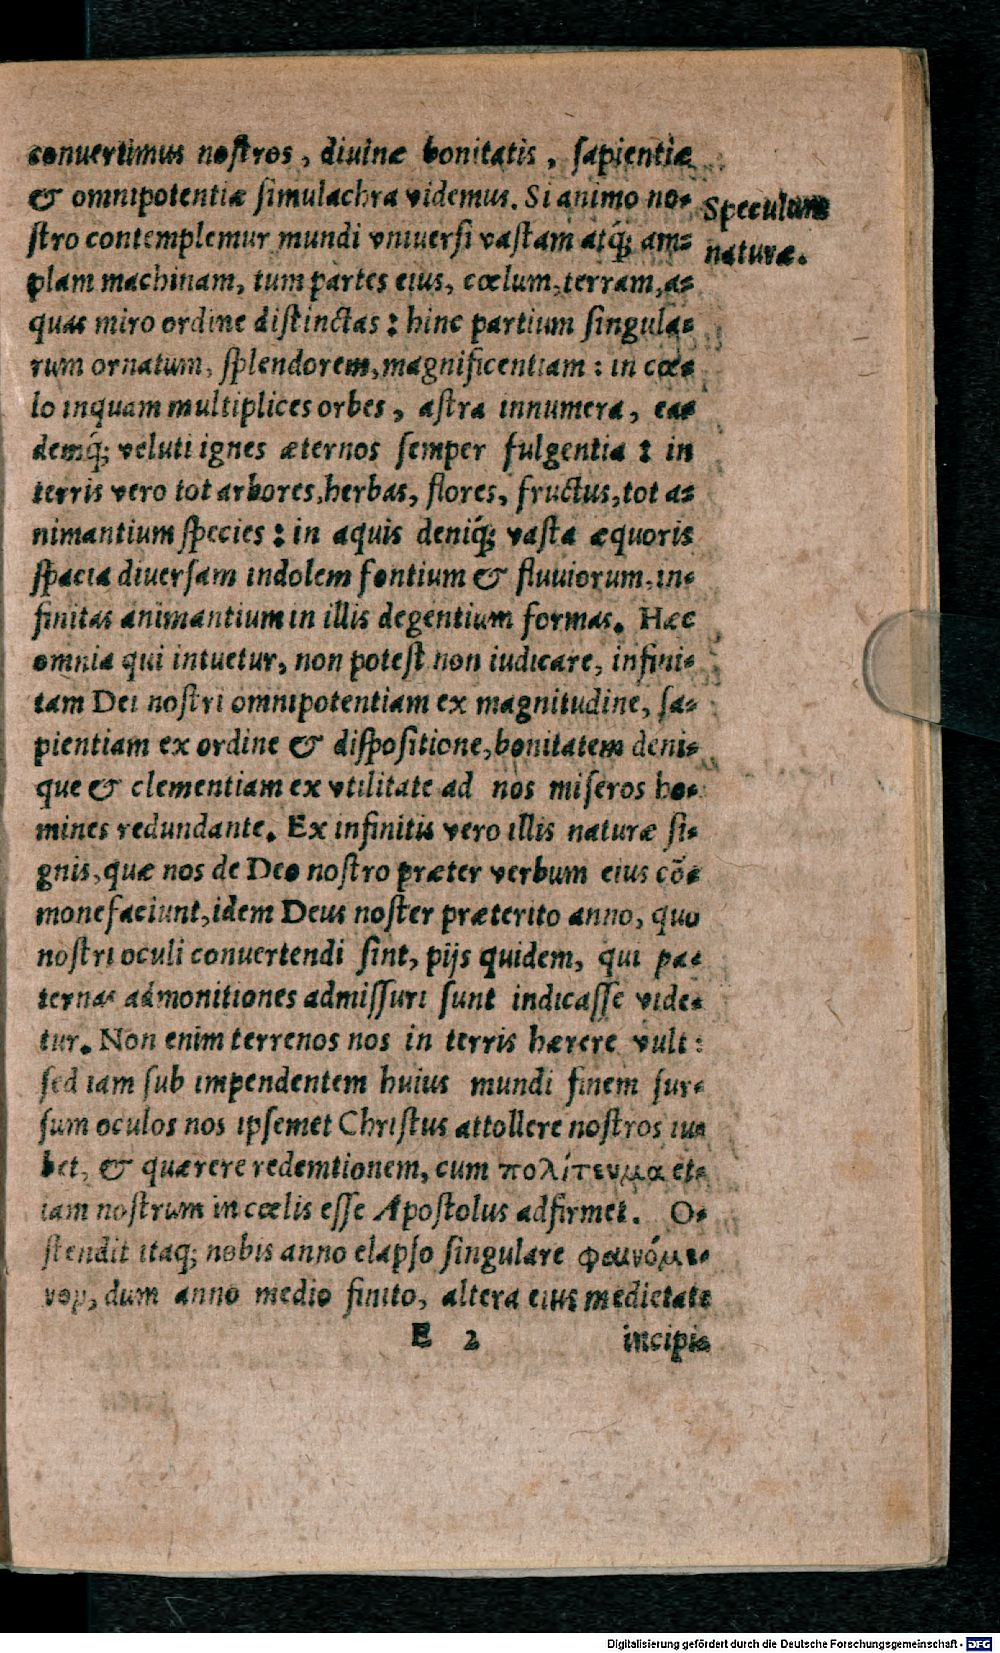 conuertimus nostros, diuinæ bonitatis, sapientiæ
& omnipotentiæ simulachra videmus. Si animo no-
stro contemplemur mundi vniuersi vastam atq́; am-
plam machinam, tum partes eius, cœlum, terram, a-
quas miro ordine distinctas: hinc partium singula-
rum ornatum, splendorem, magnificentiam: in cœ-
lo inquam multiplices orbes, astra innumera, ea-
demq́; veluti ignes æternos semper fulgentia: in
terris vero tot arbores, herbas, flores, fructus, tot a-
nimantium species: in aquis deniq́; vasta æquoris
spacia diuersam indolem fontium & fluuiorum, in-
finitas animantium in illis degentium formas. Hæc
omnia qui intuetur, non potest non iudicare, infini-
tam Dei nostri omnipotentiam ex magnitudine, sa-
pientiam ex ordine & dispositione, bonitatem deni-
que & clementiam ex vtilitate ad nos miseros ho-
mines redundante. Ex infinitis vero illis naturæ si-
gnis, quæ nos de Deo nostro præter verbum eius cõ-
monefaciunt, idem Deus noster præterito anno, quo
nostri oculi conuertendi sint, pijs quidem, qui pa-
ternas admonitiones admissuri sunt indicasse vide-
tur. Non enim terrenos nos in terris hærere vult:
sed iam sub impendentem huius mundi finem sur-
sum oculos nos ipsemet Christus attollere nostros iu-
bet, & quærere redemtionem, cum πολίτευμα et-
iam nostrum in cœlis esse Apostolus adfirmet. O-
stendit itaq; nobis anno elapso singulare φαινόμε-
νον, dum anno medio finito, altera eius medietate
E 2 incipie
Speculum
naturæ.
Digitalisierung gefördert durch die Deutsche Forschungsgemeinschaft - DFG